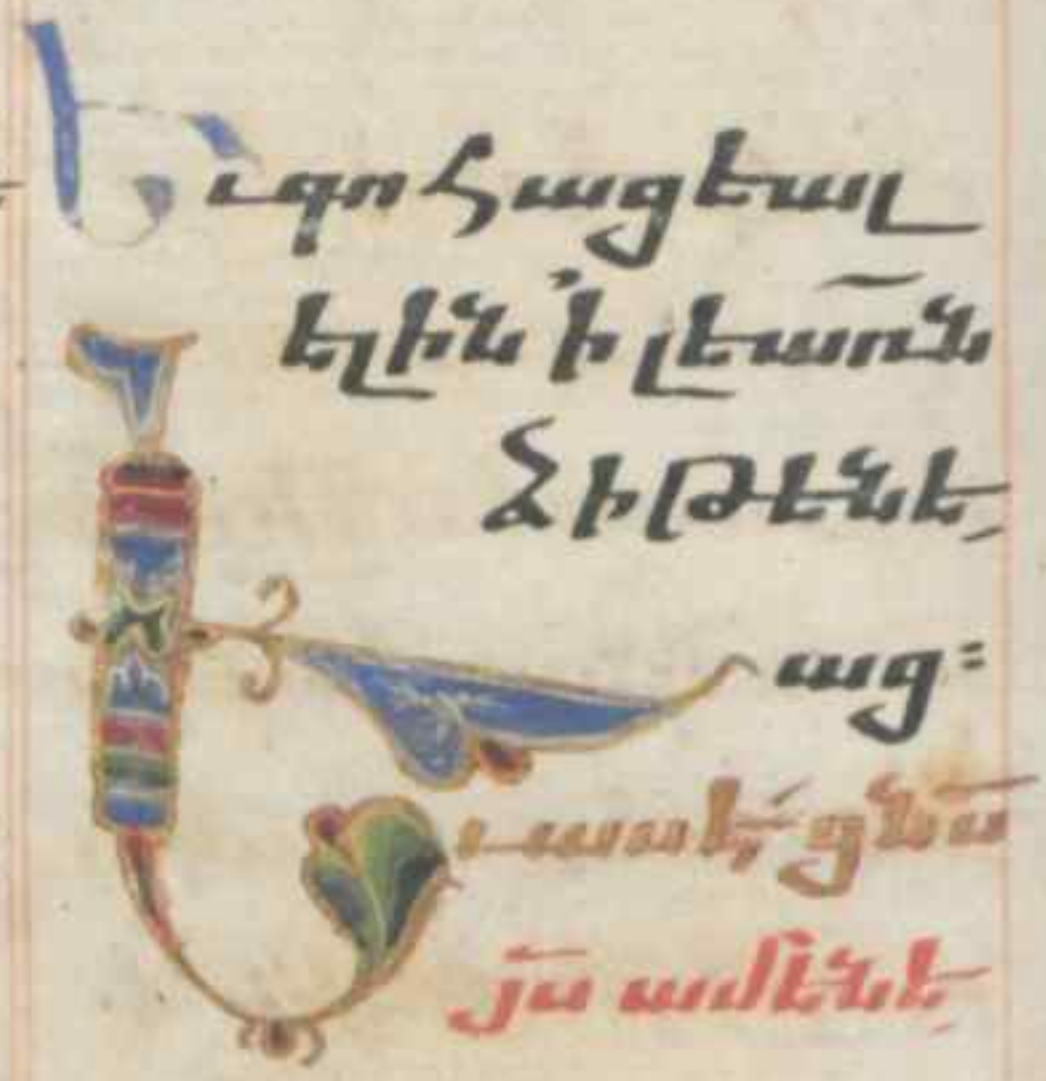 Եւ գոհացեալ
ելին ՛ի լեառն
ձիթենե
աց։
Եւ ասէ ցնս̄
յս̄ ամենե